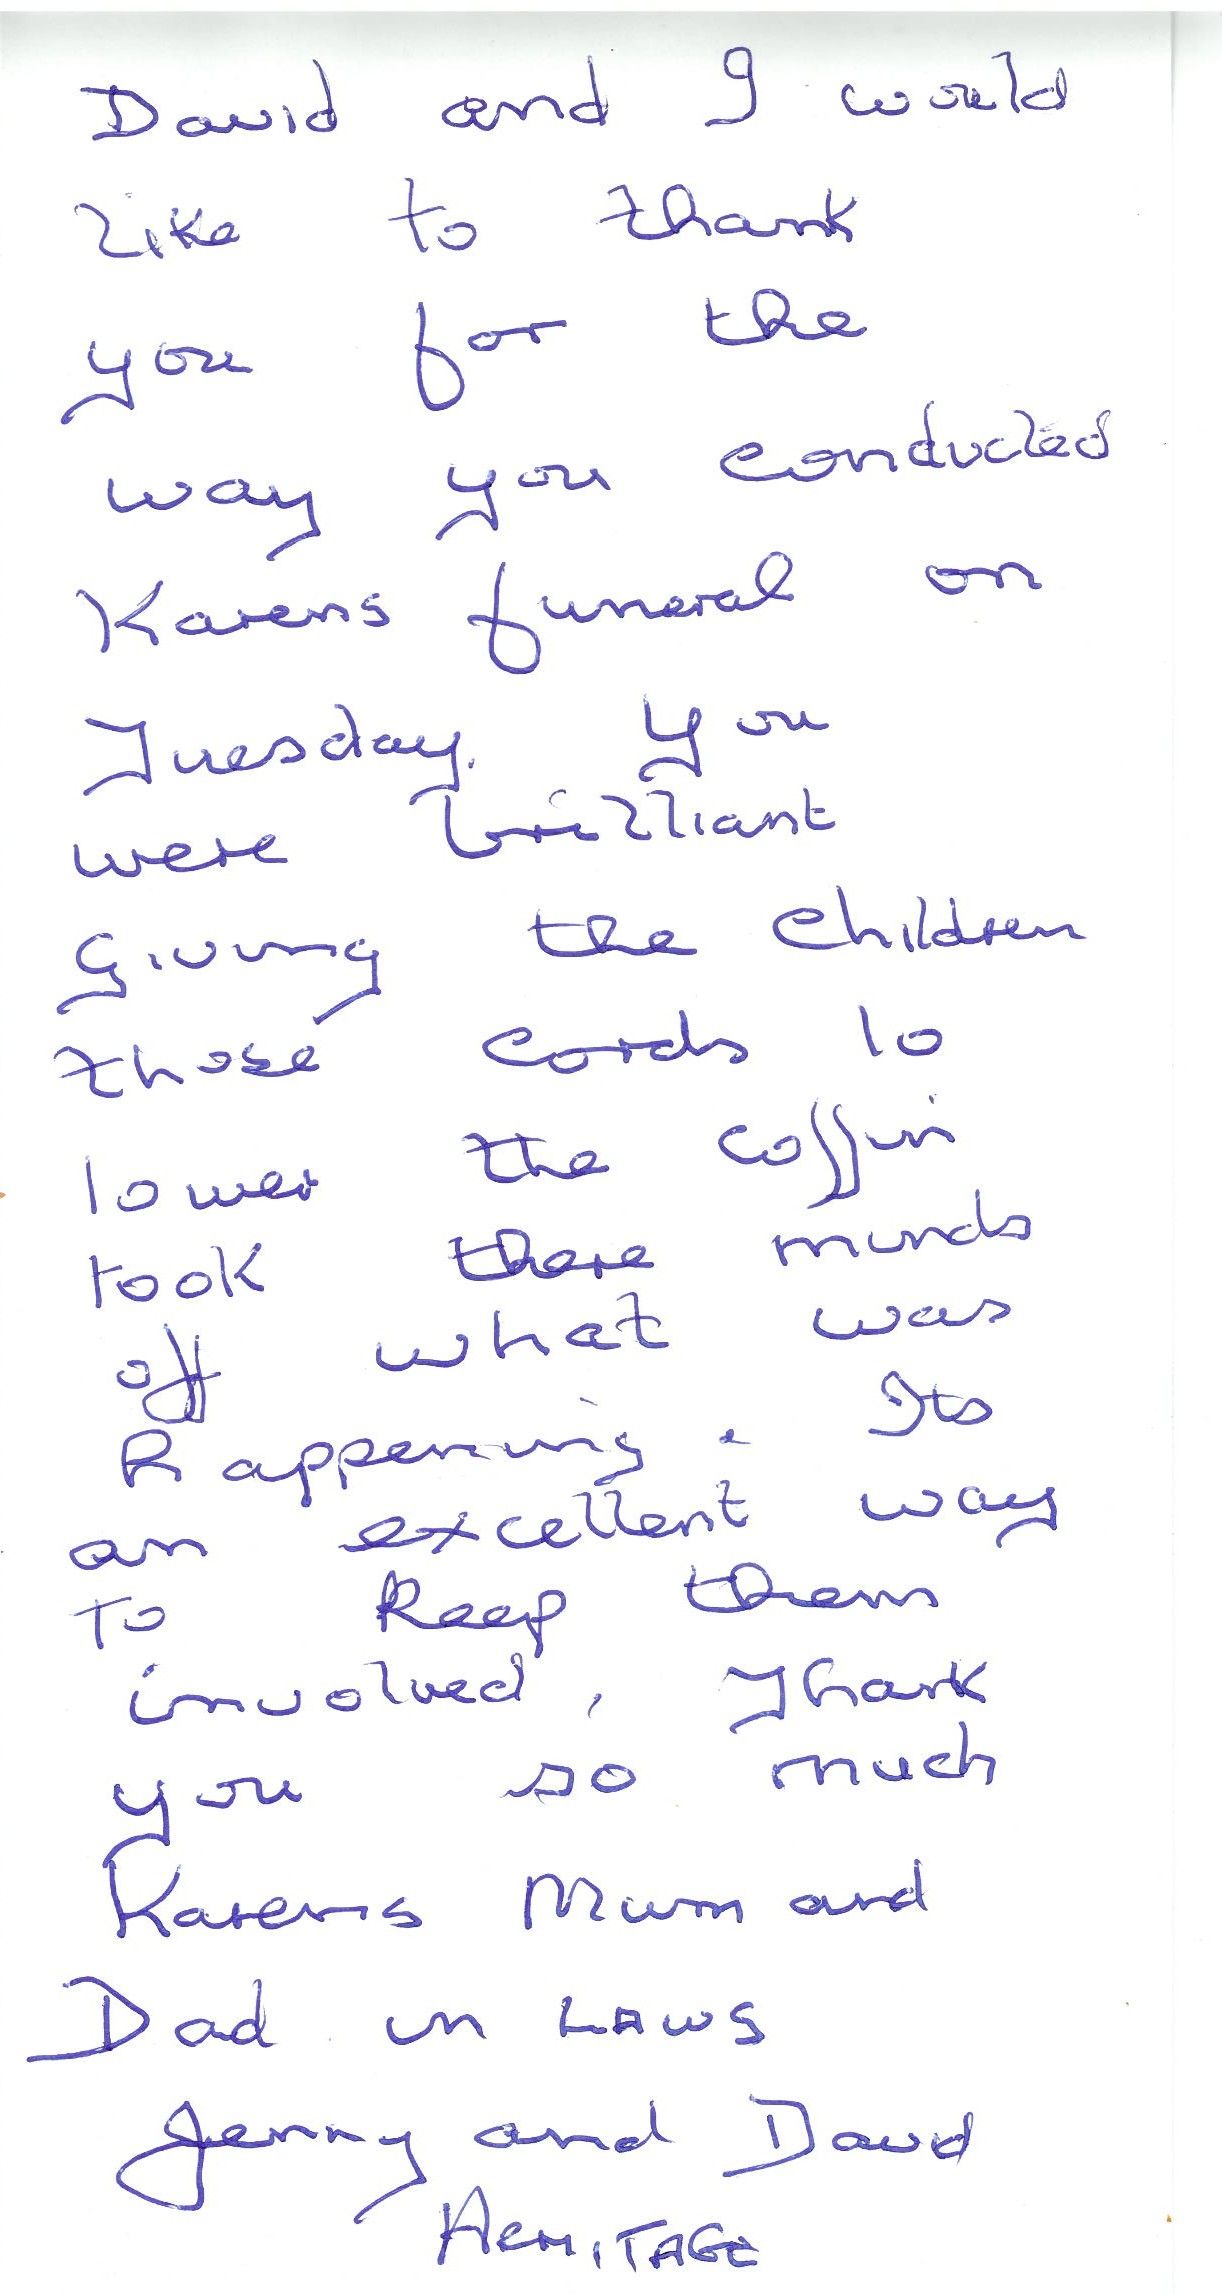 David and I would
like to thank
you for the
way you conducted
Karens funeral on
Tuesday. You
were brilliant
giving the children
those cords to
lower the coffin
took there minds
off what was
happening. Its
an excellent way
To keep them
involved, Thank
you so much
Karens Mum and
Dad in LAWS
Jenny and David
HERMITAGE